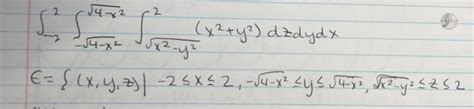 ∫_{-2}^{2} ∫_{-√(4-x²)}^{√(4-x²)} ∫_{√(x²-y²)}^{2} (x²+y²) dzdydx
E = { (x,y,z) | -2≤x≤2, -√(4-x²) ≤y≤ √(4-x²), √(x²-y²) ≤z≤2